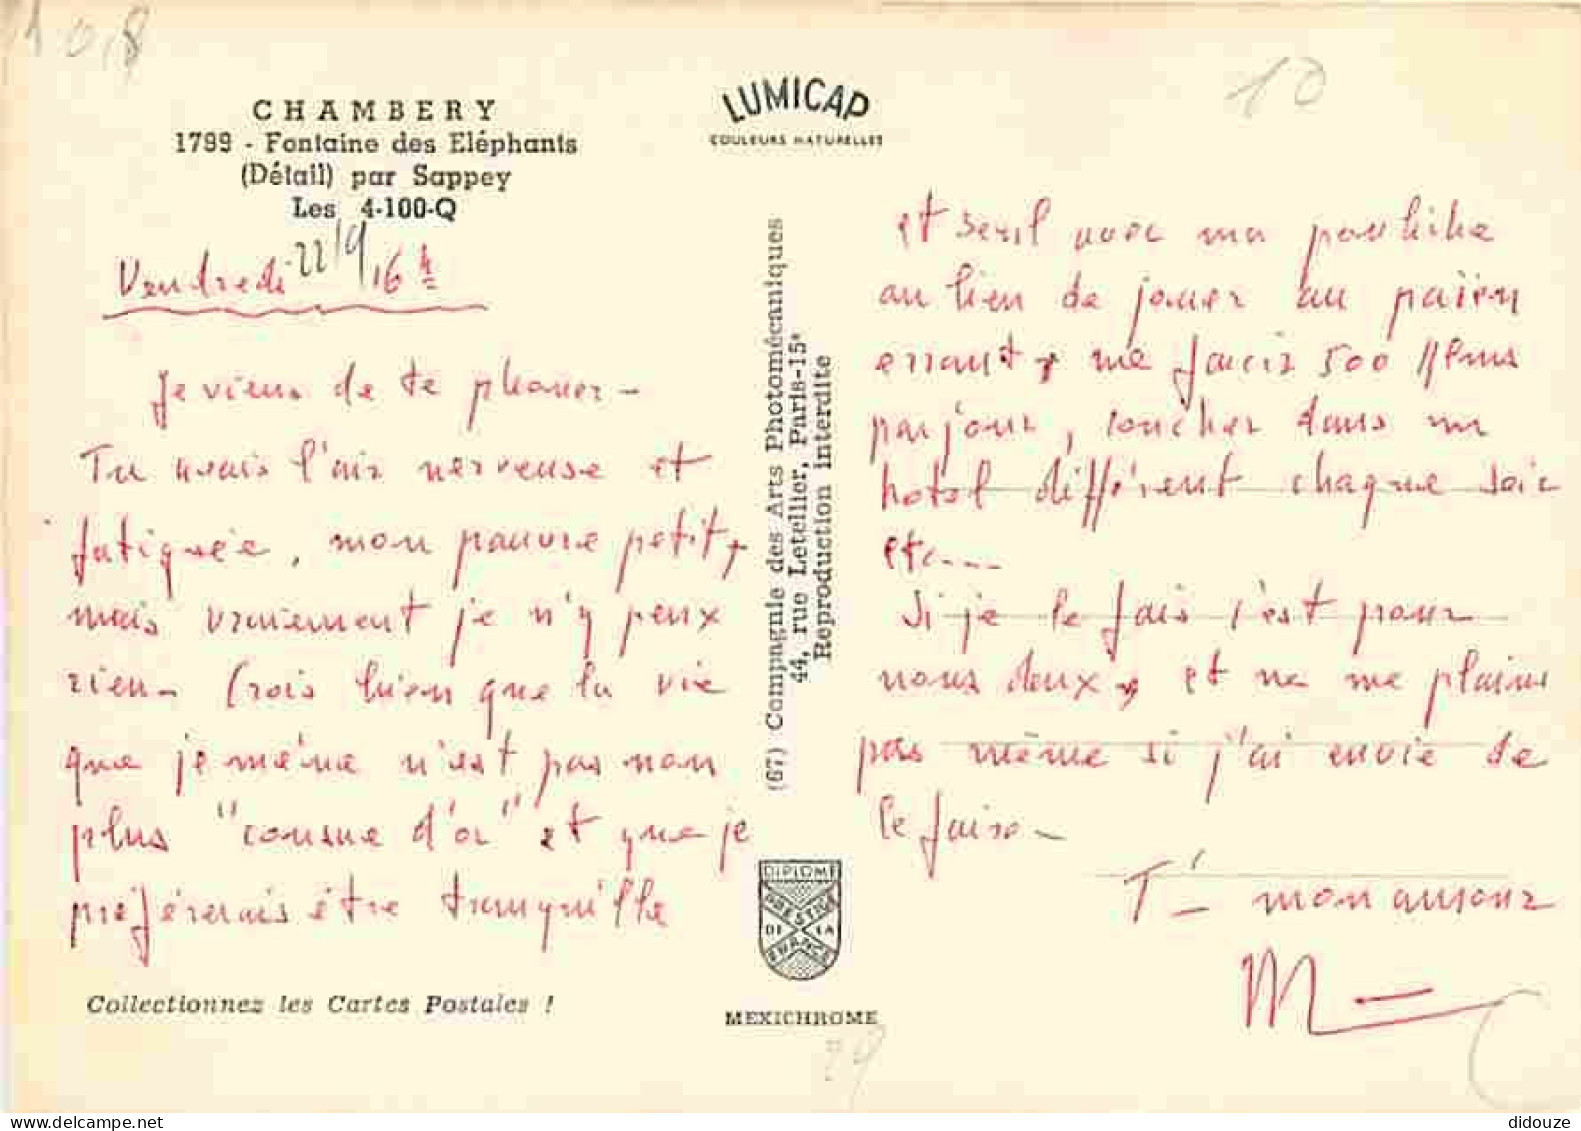 10,8
10
CHAMBERY
1799 - Fontaine des Eléphants
(Détail) par Sappey
Les 4-100-Q
LUMICAP
COULEURS NATURELLES
Vendredi 22/9 16h
Je viens de te phoner -
Tu avais l'air nerveuse et
fatiguée, mon pauvre petit,
mais vraiment je n'y peux
rien - Crois bien que la vie
que je mène n'est pas non
plus "cousue d'or" et que je
préférerais être tranquille
Collectionnez les Cartes Postales !
(67) Compagnie des Arts Photomécaniques
44, rue Letellier, Paris-15e
Reproduction interdite
DIPLOME
PRESTIGE
DE LA
FRANCE
MEXICHROME
et seul avec ma
au lieu de jouer au
errant, me farcir 500
par jour, coucher dans un
hotel différent chaque soir
etc....
Si je le fais c'est pour
nous deux, et ne me plains
pas même si j'ai envie de
le faire -
T' mon amour
M
didouze